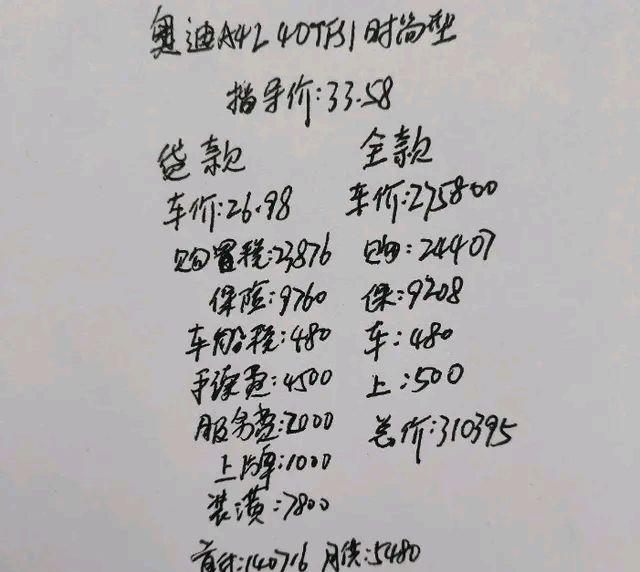 奥迪A4L 40TFSI时尚型
指导价:33.58
贷款 全款
车价:26.98 车价:275800
购置税:23876 购:24407
保险:9760 保:9208
车船税:480 车:480
手续费:4500 上:500
服务费:2000 总价:310395
上牌:1000
装潢:7800
首付:140716 月供:5480